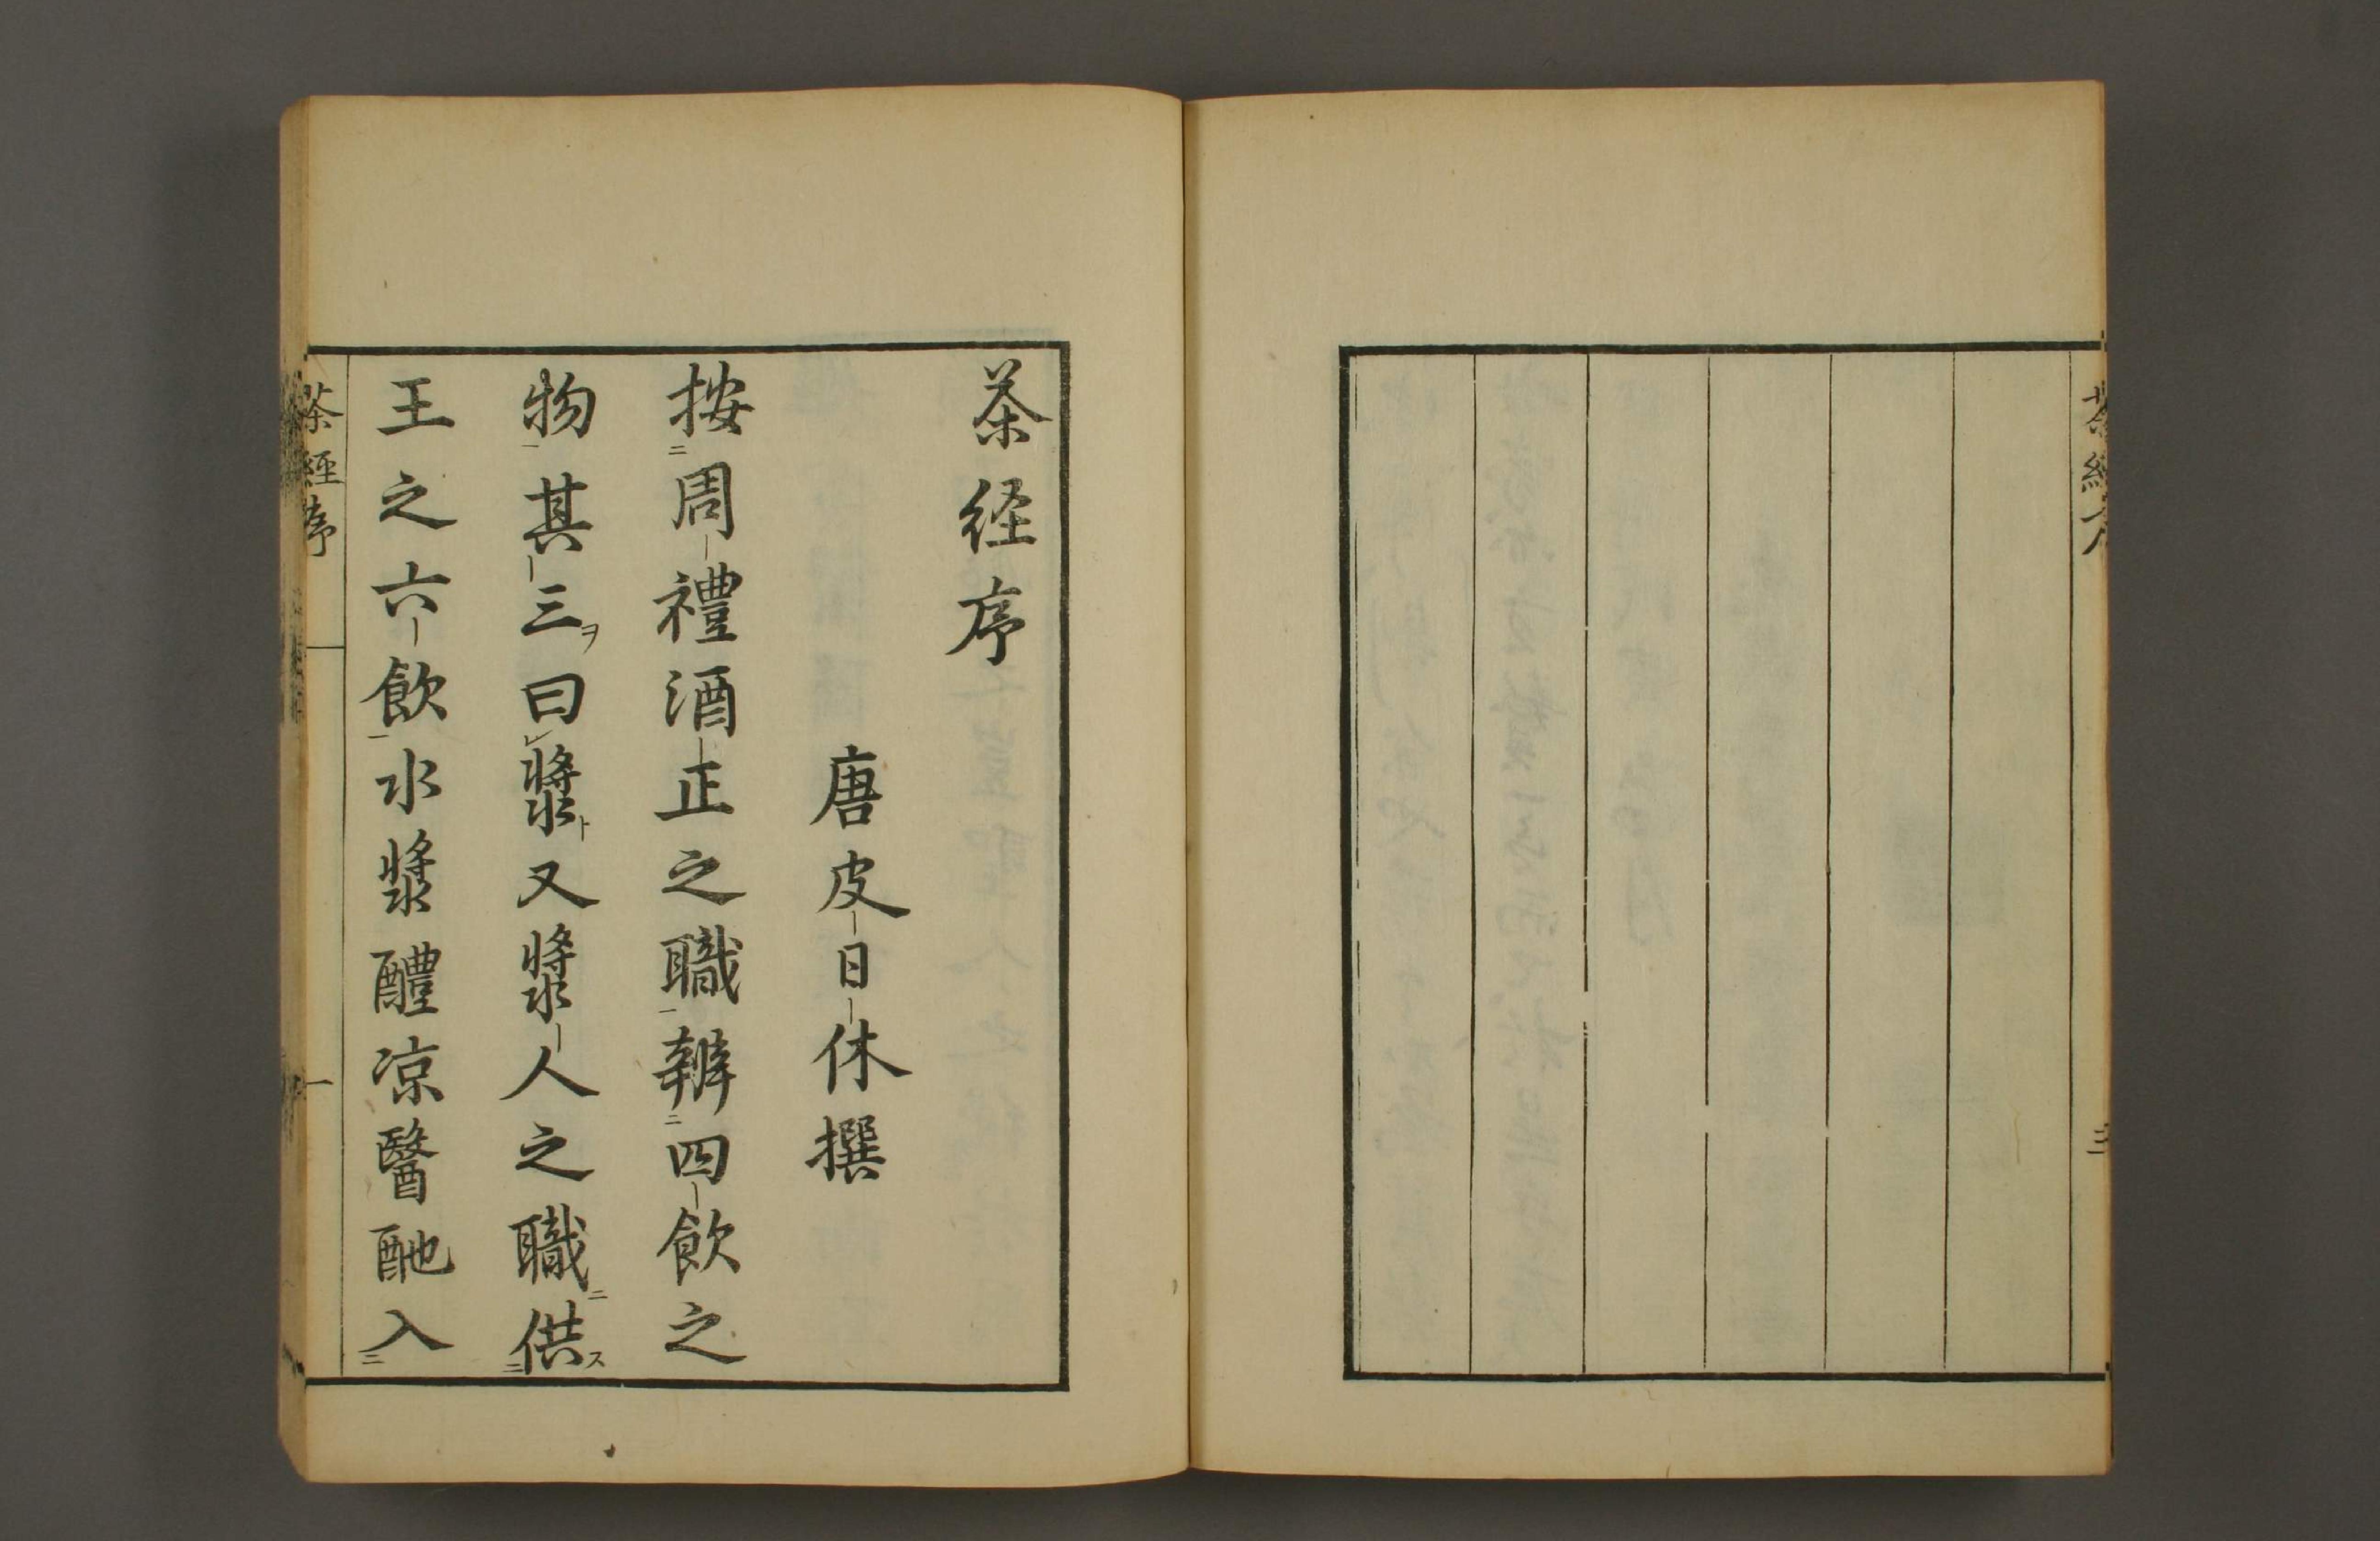 茶経序
唐皮日休撰
按周禮酒正之職辨四飲之
物其三曰漿又漿人之職供
王之六飲水漿醴涼醫酏入
茶經序
一